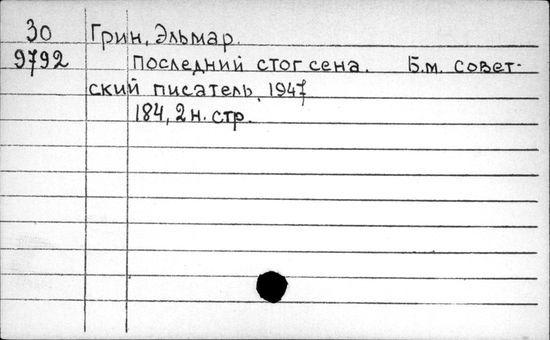 30 Грин, Эльмар.
9792 Последний стог сена. Б.м. Совет-
ский писатель, 1947
184, 2 н. стр.